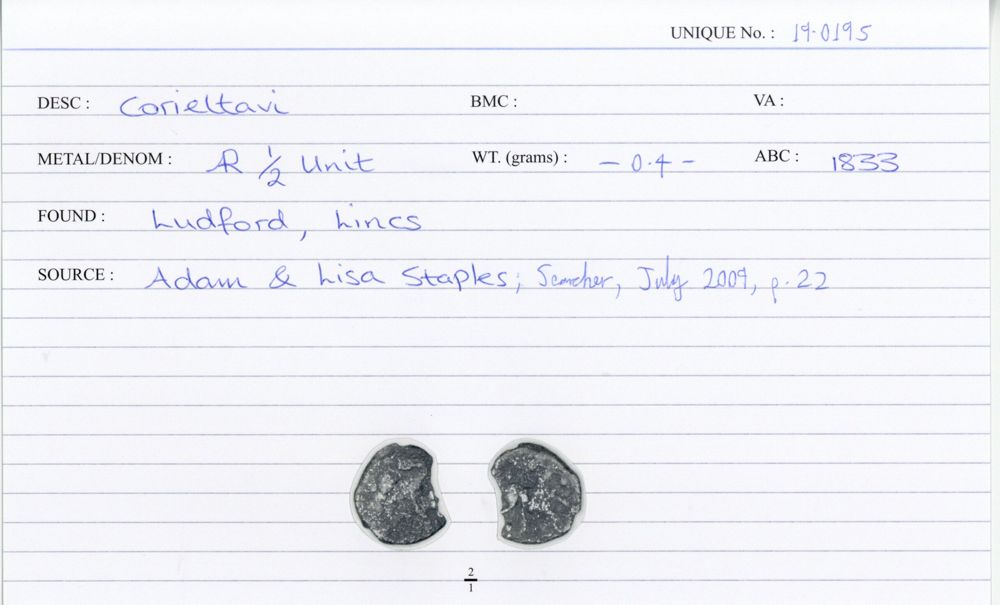 UNIQUE No. : 19.0195
DESC : Corieltavi BMC : VA :
METAL/DENOM : AR ½ Unit WT. (grams) : – 0.4 – ABC : 1833
FOUND : Ludford, Lincs
SOURCE : Adam & Lisa Staples; Searcher, July 2009, p. 22
2
1